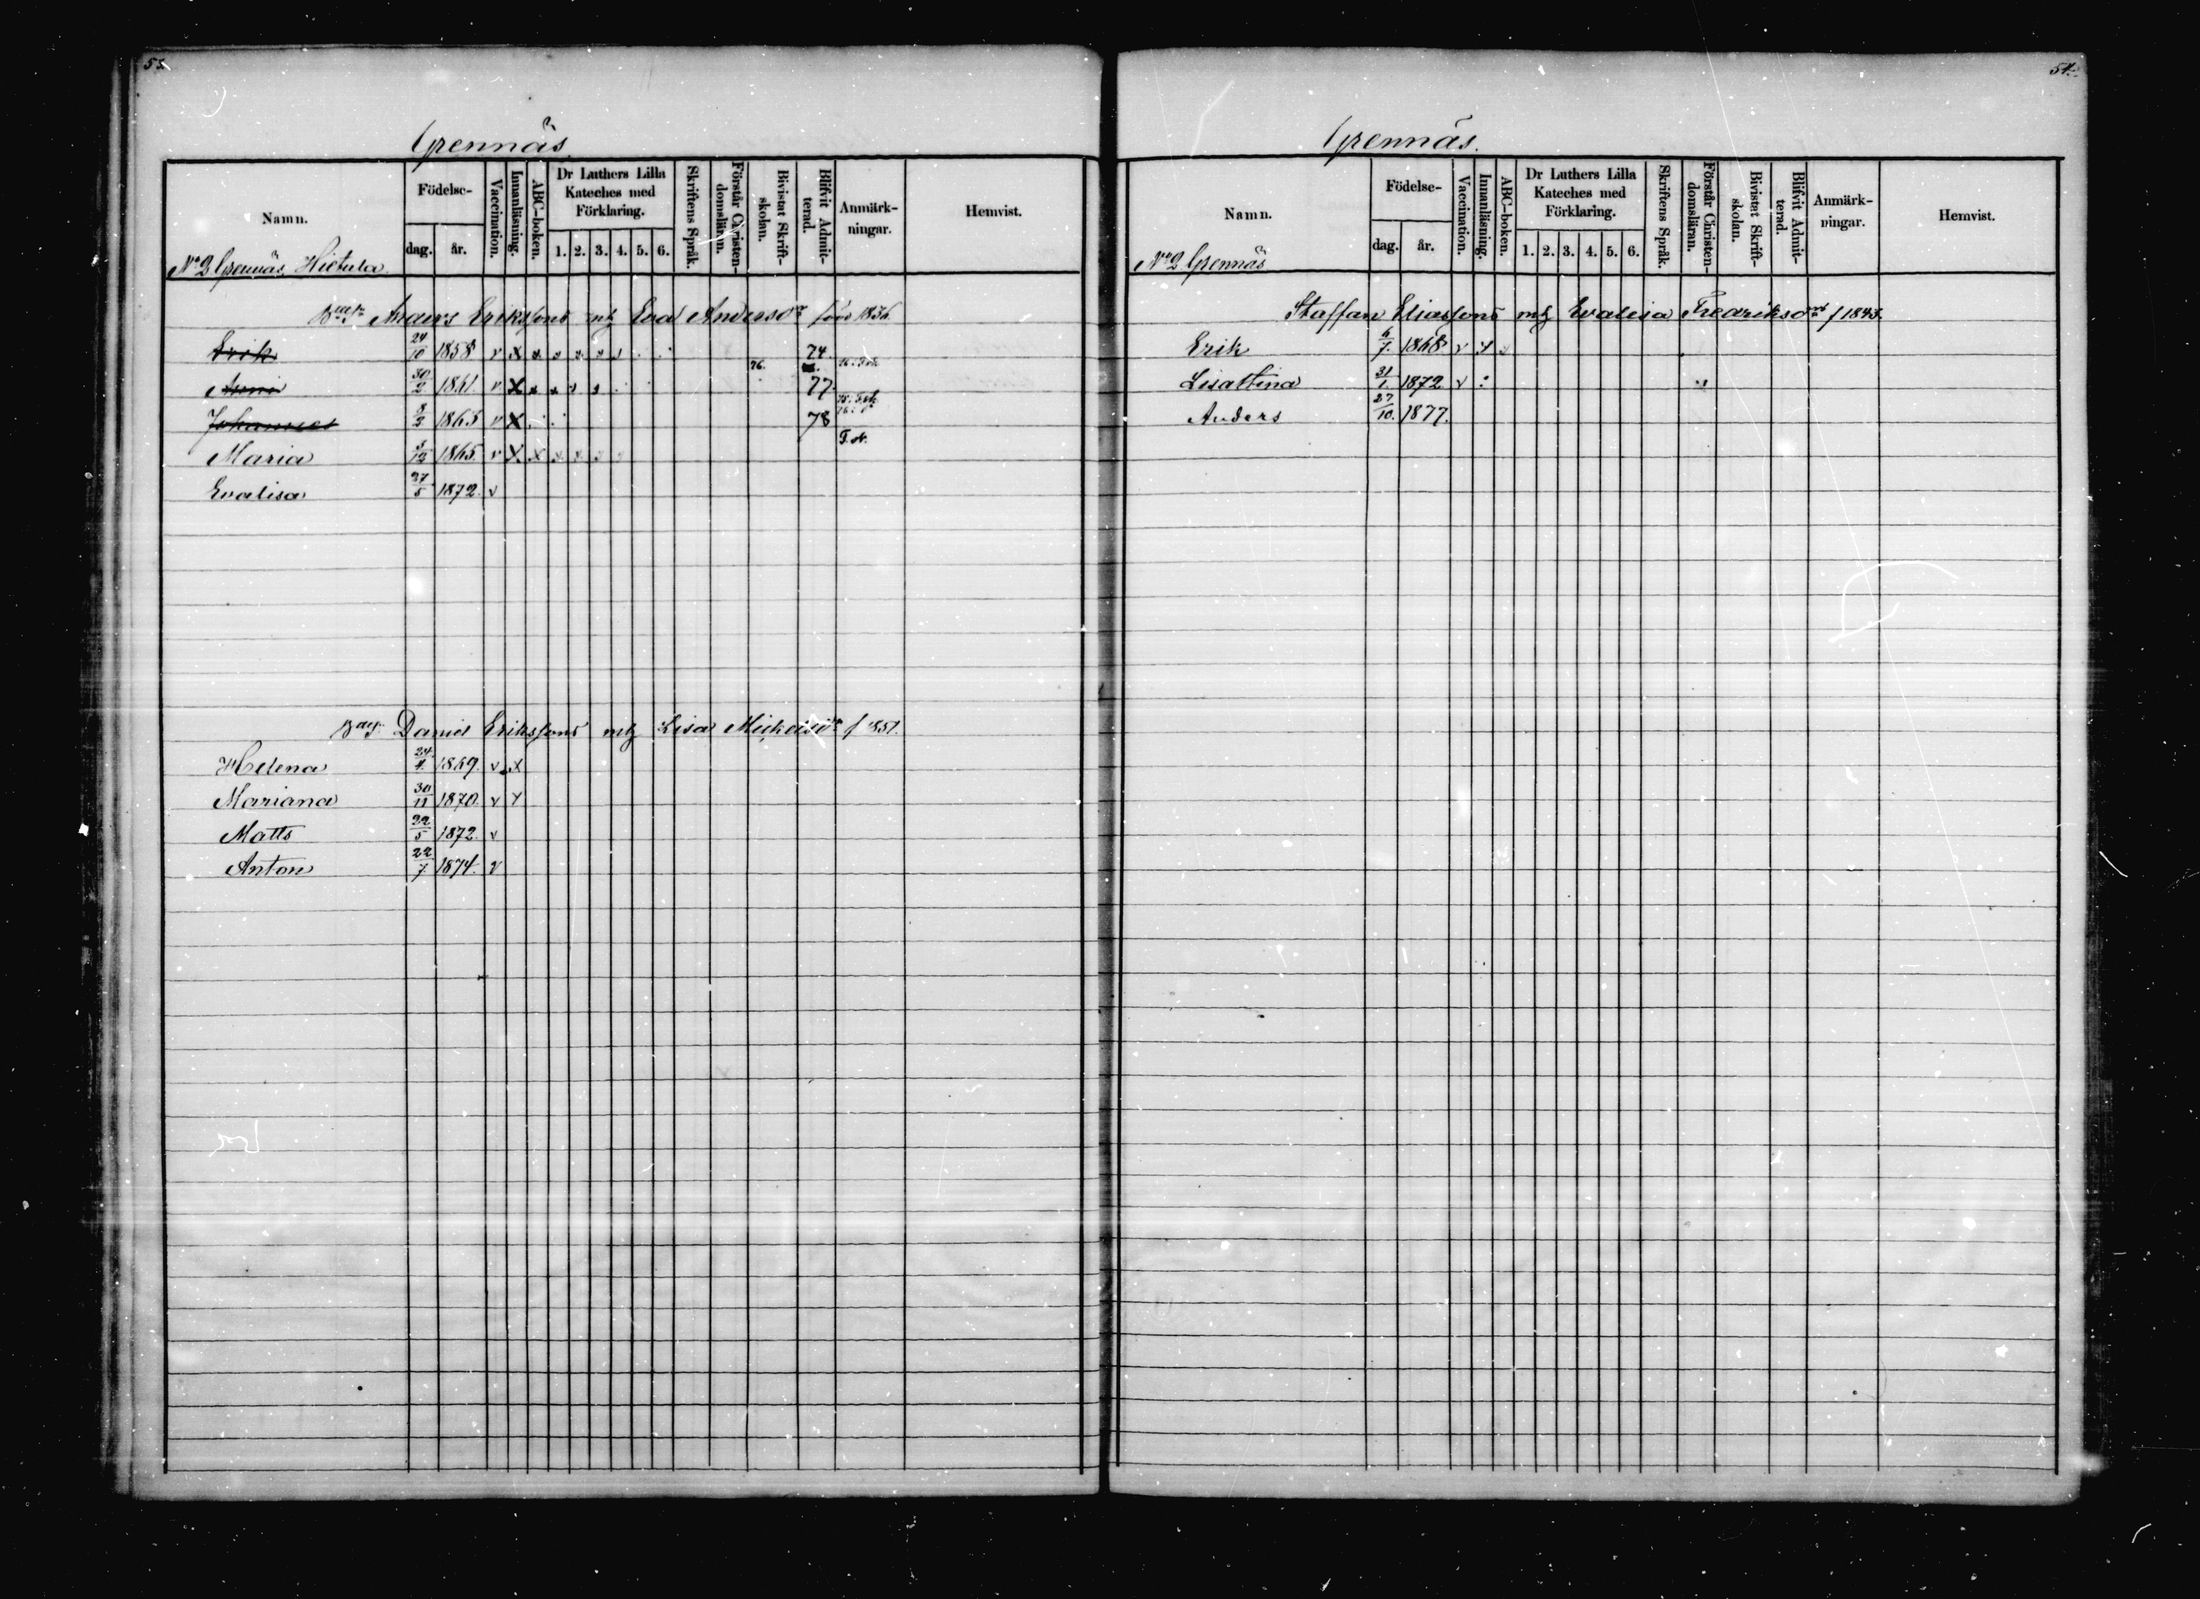 53.
Grennäs
Namn.
Födelse-
dag.
år.
Vaccination.
Innanläsning.
ABC-boken.
Dr Luthers Lilla
Kateches med
Förklaring.
1. 2. 3. 4. 5. 6.
Skriftens Språk.
Förstår Christen-
domsläran.
Bivistat Skrift-
skolan.
Blifvit Admit-
terad.
Anmärk-
ningar.
Hemvist.
No 2 Grennäs, Hietula
Anders Erikssons mh Eva Andersdr född 1836
Erik 24/10 1858 v x x x x x x 76. 74.
Anni 30/2 1861 v x x x x x 77
Johannes 3/2 1863 v x 78
Maria 3/12 1865 v x x x x x x
Evalisa 27/5 1872. v
Daniel Erikssons mh Lisa Mickelsdr f 1851.
Helena 24/4. 1869. v x
Mariana 30/11 1870. v x
Matts 22/5 1872. v
Anton 22/7 1874. v
54.
Grennäs.
Namn.
Födelse-
dag.
år.
Vaccination.
Innanläsning.
ABC-boken.
Dr Luthers Lilla
Kateches med
Förklaring.
1. 2. 3. 4. 5. 6.
Skriftens Språk.
Förstår Christen-
domsläran.
Bivistat Skrift-
skolan.
Blifvit Admit-
terad.
Anmärk-
ningar.
Hemvist.
No 2 Grennäs
Staffan Eliassons mh Evalisa Fredriksdr f 1843.
Erik 6/7. 1868. v x
Lisastina 31/1. 1872 v
Anders 27/10. 1877.